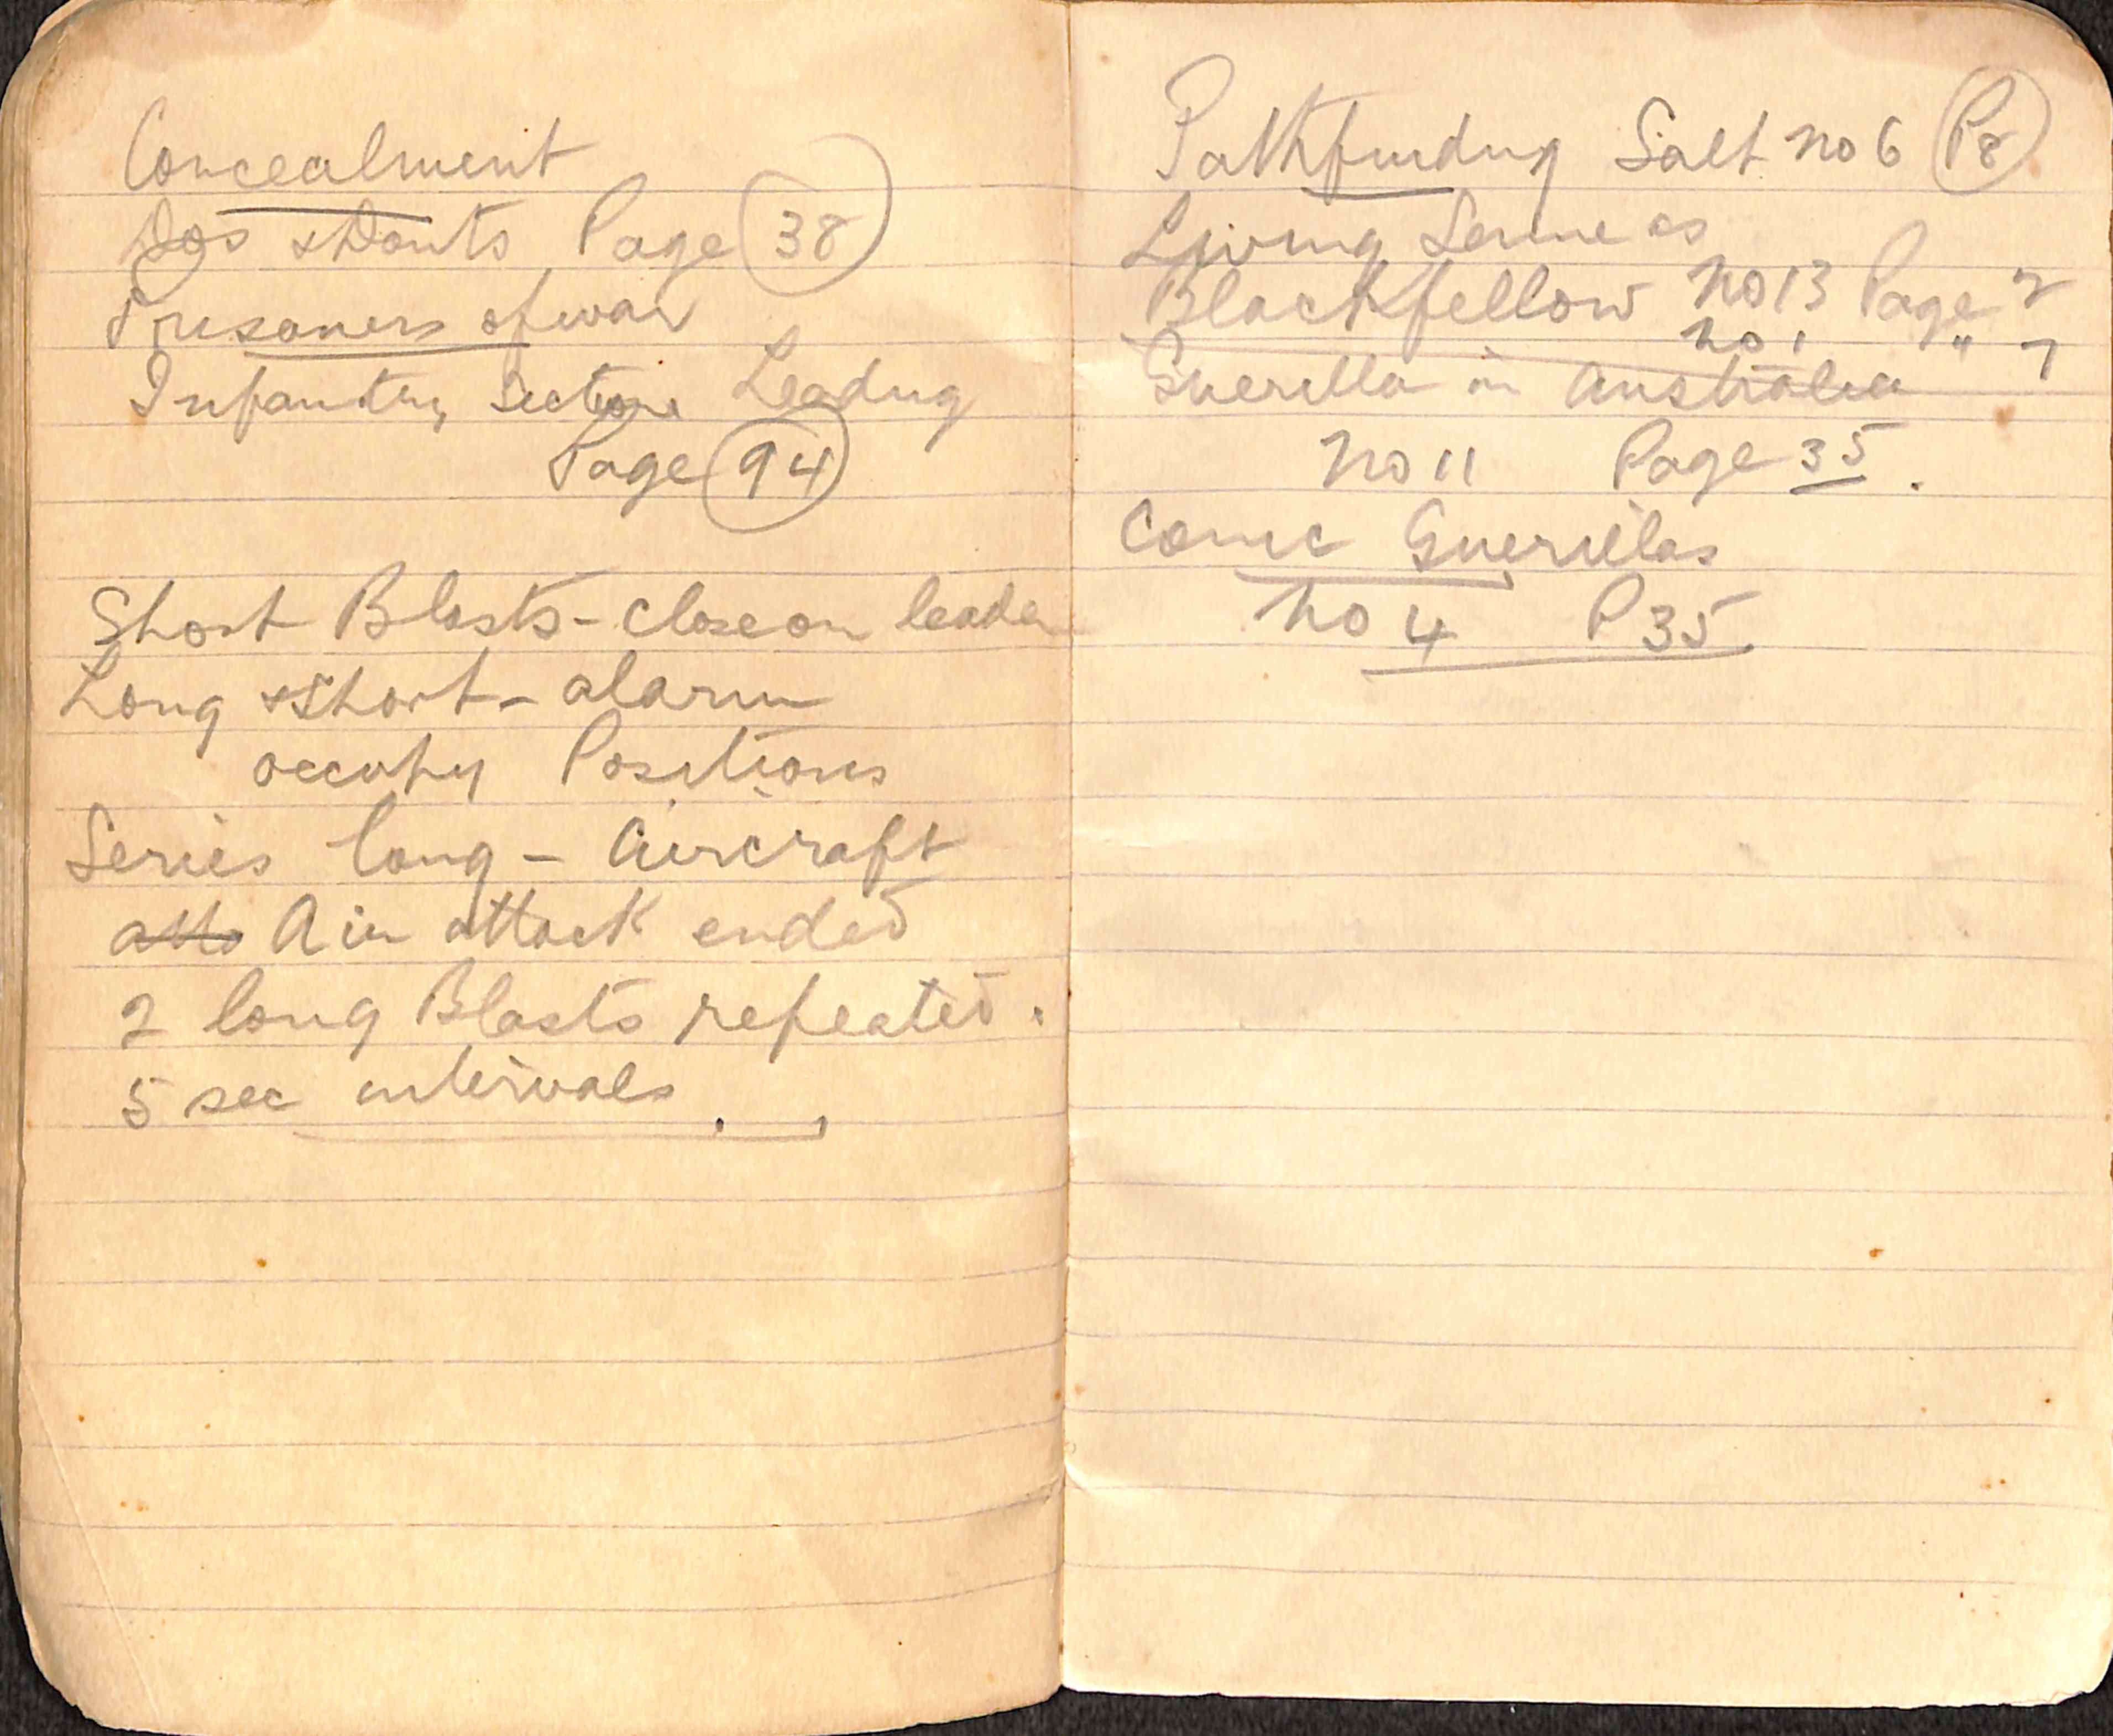 Concealment
Dos & Donts Page 38
Prisoners of war
Infantry Section Leading
Page 94
Short Blasts - close on leader
Long & short - alarm
occupy Positions
Series long - Aircraft
atta Air attack ended
2 long Blasts repeated.
5 sec intervals.
Pathfinding Salt no 6 P8
Living Same as
Blackfellow no 13 Page 2
no 1 " 7
Guerilla in Australia
no 11 Page 35.
Comic Guerillas
no 4 P 35